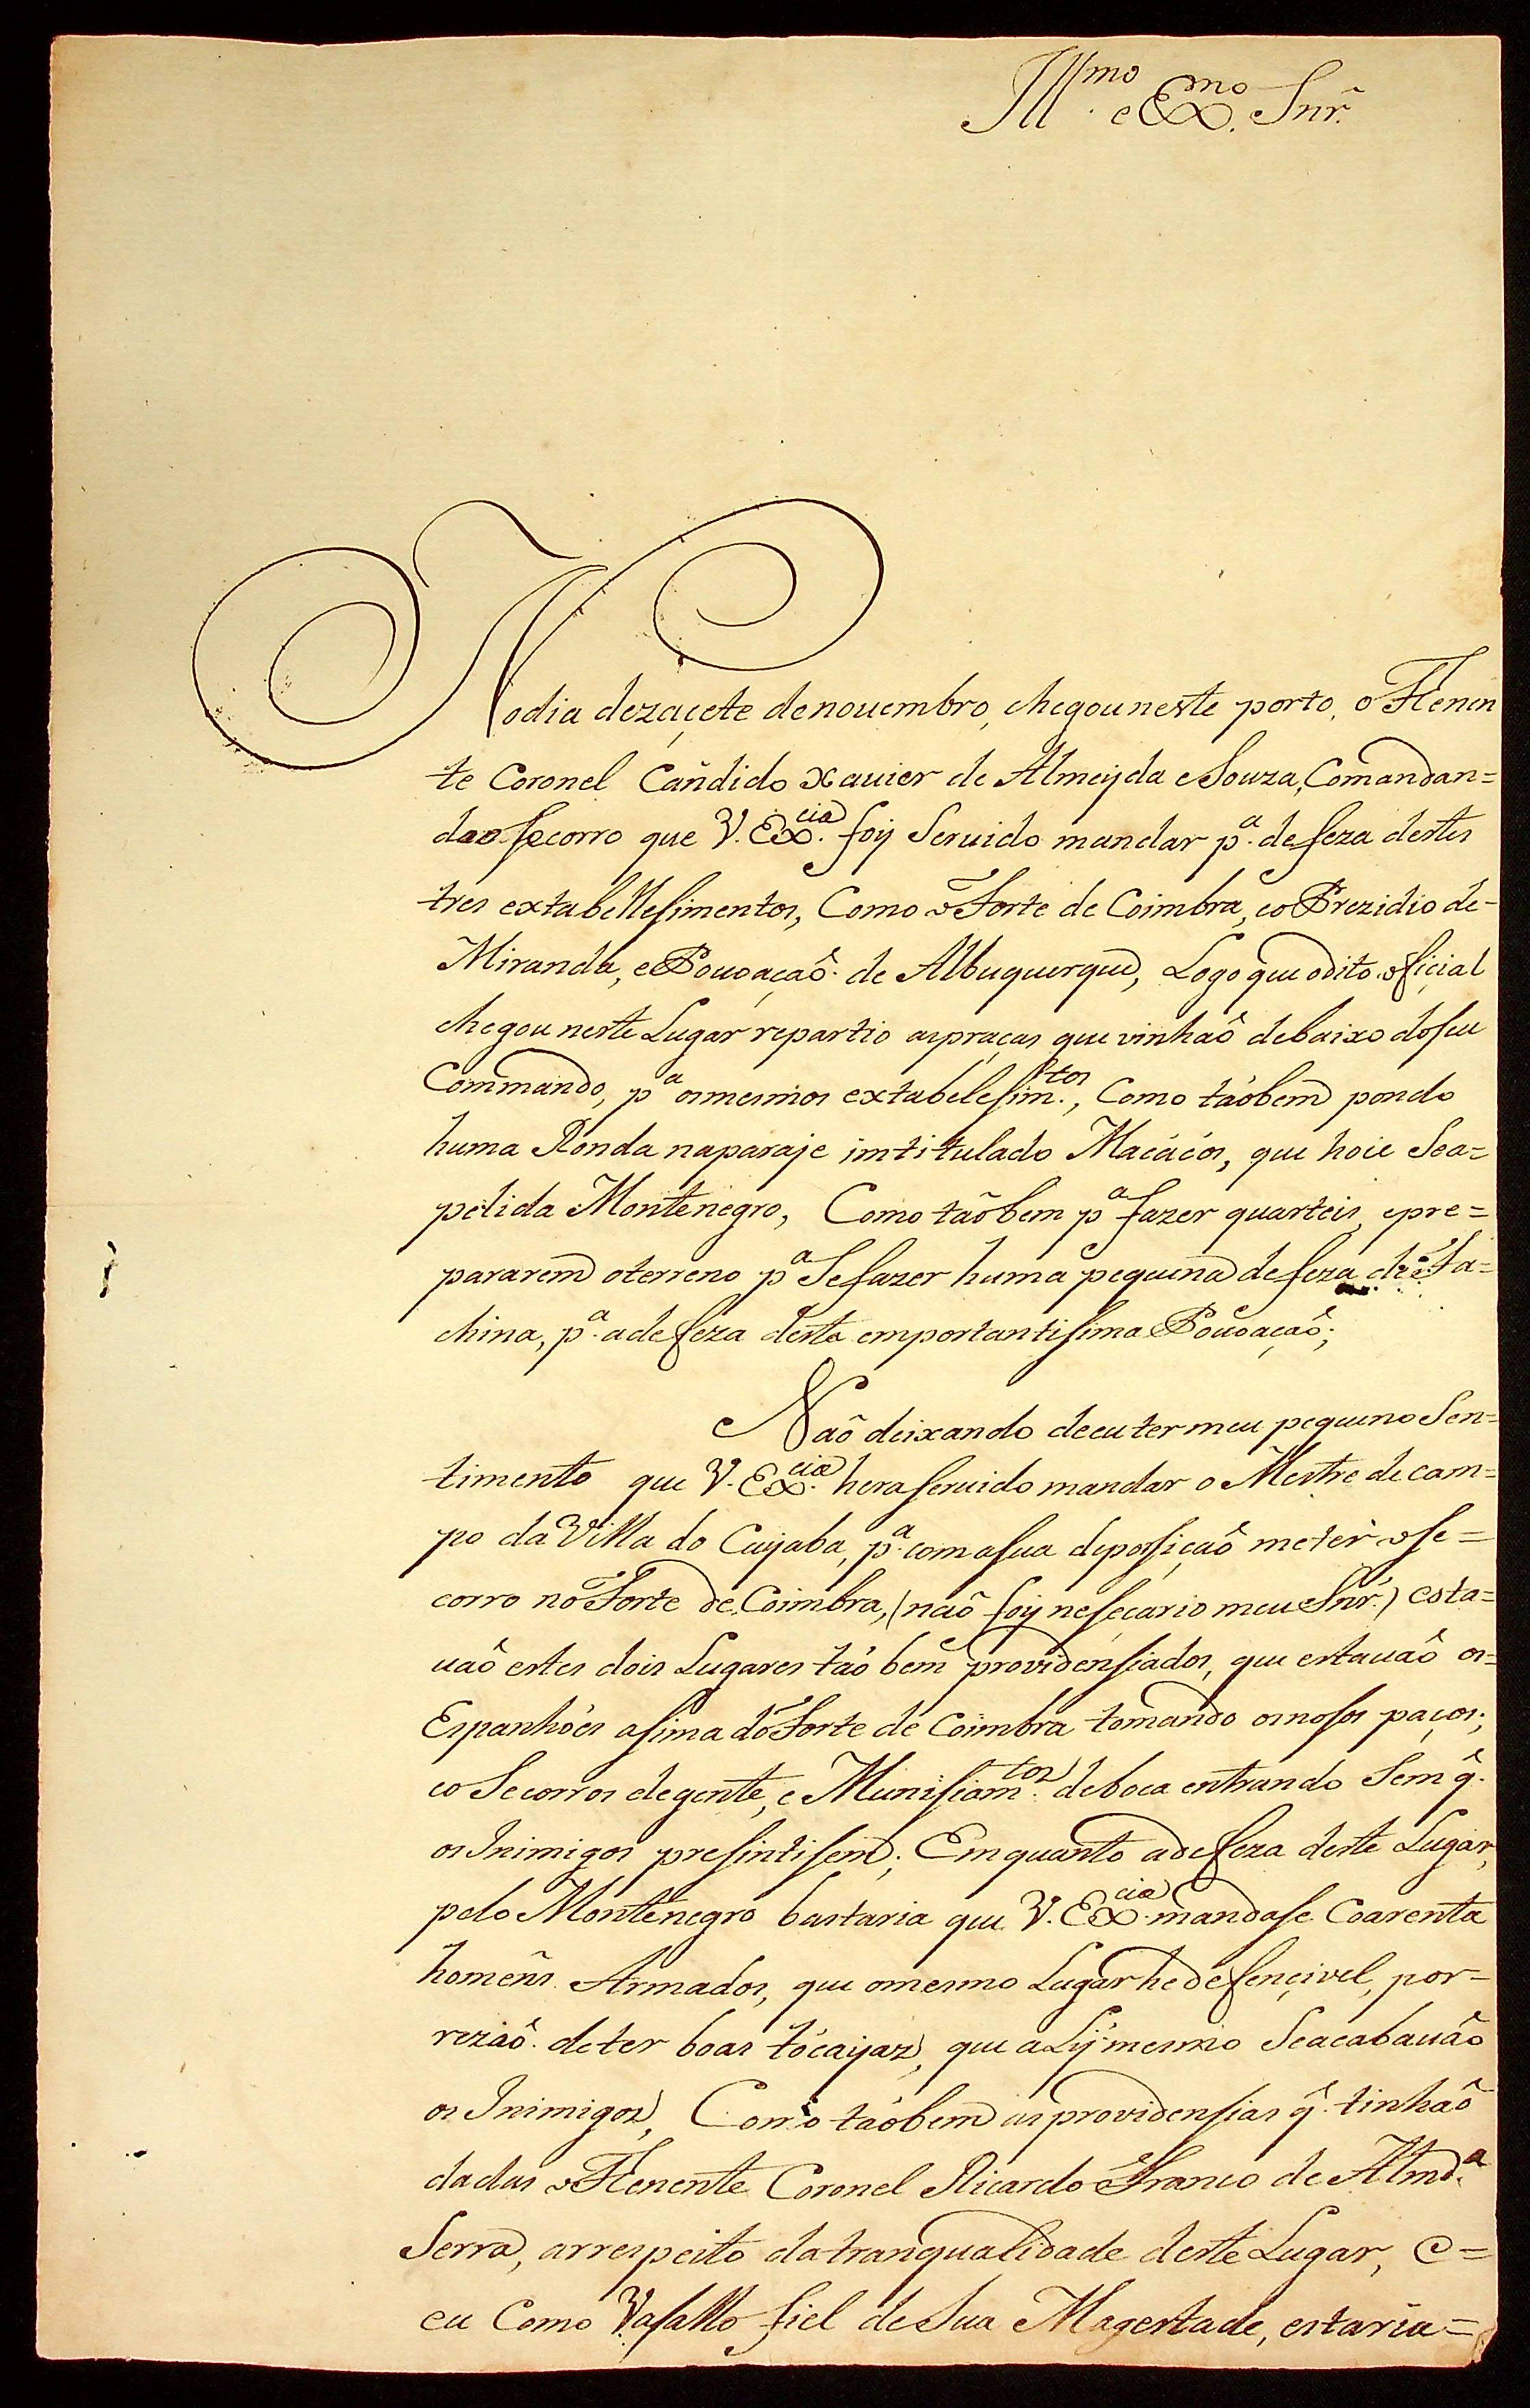 Ill.mo e Ex.mo Snr.
No dia dezaçete de nouembro, chegou neste porto, o Thenen
te Coronel Cañdido Xauier de Almeyda e Souza, Comandan=
do o socorro que V. Ex.cia foy Seruido mandar p.a defeza destes
tres extabellesimentos, Como o Forte de Coimbra, e o Prezidio de-
Miranda, e Pouoaçaõ de Albuquerque, Logo que o dito oficial
chegou neste Lugar repartio as praças que vinhaõ debaixo do seu
Commando, p.a os mesmos extabelesim.tos, Como taõbem pondo
huma Ronda na paraje imtitulado Macácos, que hoie Sea=
pelida Montenegro, Como taõbem p.a fazer quarteis, e pre=
pararem o terreno p.a Se fazer huma pequena defeza de Fa=
china, p.a a defeza desta emportantisima Pouoaçaõ;
Naõ deixando de eu ter meu pequeno Sen=
timento que V. Ex.cia hera seruido mandar o Mestre de cam=
po da Villa do Cuyaba, p.a com a sua deposiçaõ meter o se=
corro no Forte de Coimbra, (naõ foy nesecario meu Snr.) esta=
uaõ estes dois Lugares taõ bem providensiados, que estauaõ os=
Espanhóes asima do Forte de Coimbra tomando os nosos paços;
e o Secorros de gente, e Munisiam.tos de boca entrando Sem q.
os Inimigos presintisem; Em quanto a defeza deste Lugar,
pelo Montenegro bastaria que V. Ex.cia mandase Coarenta
homens Armados, que o mesmo Lugar he defençivel, por=
rezaõ de ter boas tócayaz, que aLy mesmo Se acabauaõ
os Inimigos, Como taõbem as providensias q. tinhaõ
dadas o Thenente Coronel Ricardo Franco de Almd.a
Serra, arrespeito da tranqualidade deste Lugar, e=
eu Como Vasallo fiel de Sua Magestade, estaria=